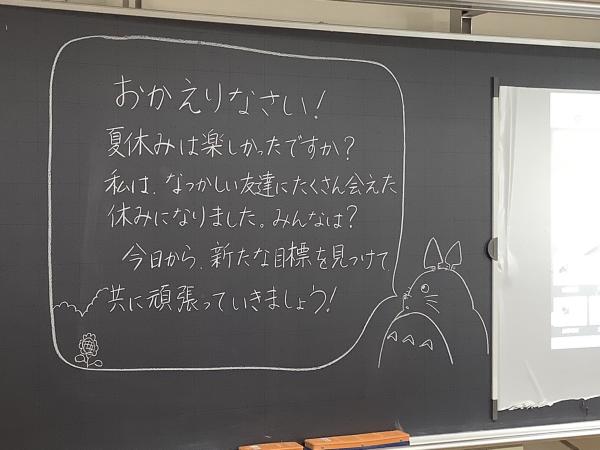 おかえりなさい！
夏休みは楽しかったですか？
私は、なつかしい友達にたくさん会えた
休みになりました。みんなは？
今日から、新たな目標を見つけて
共に頑張っていきましょう！